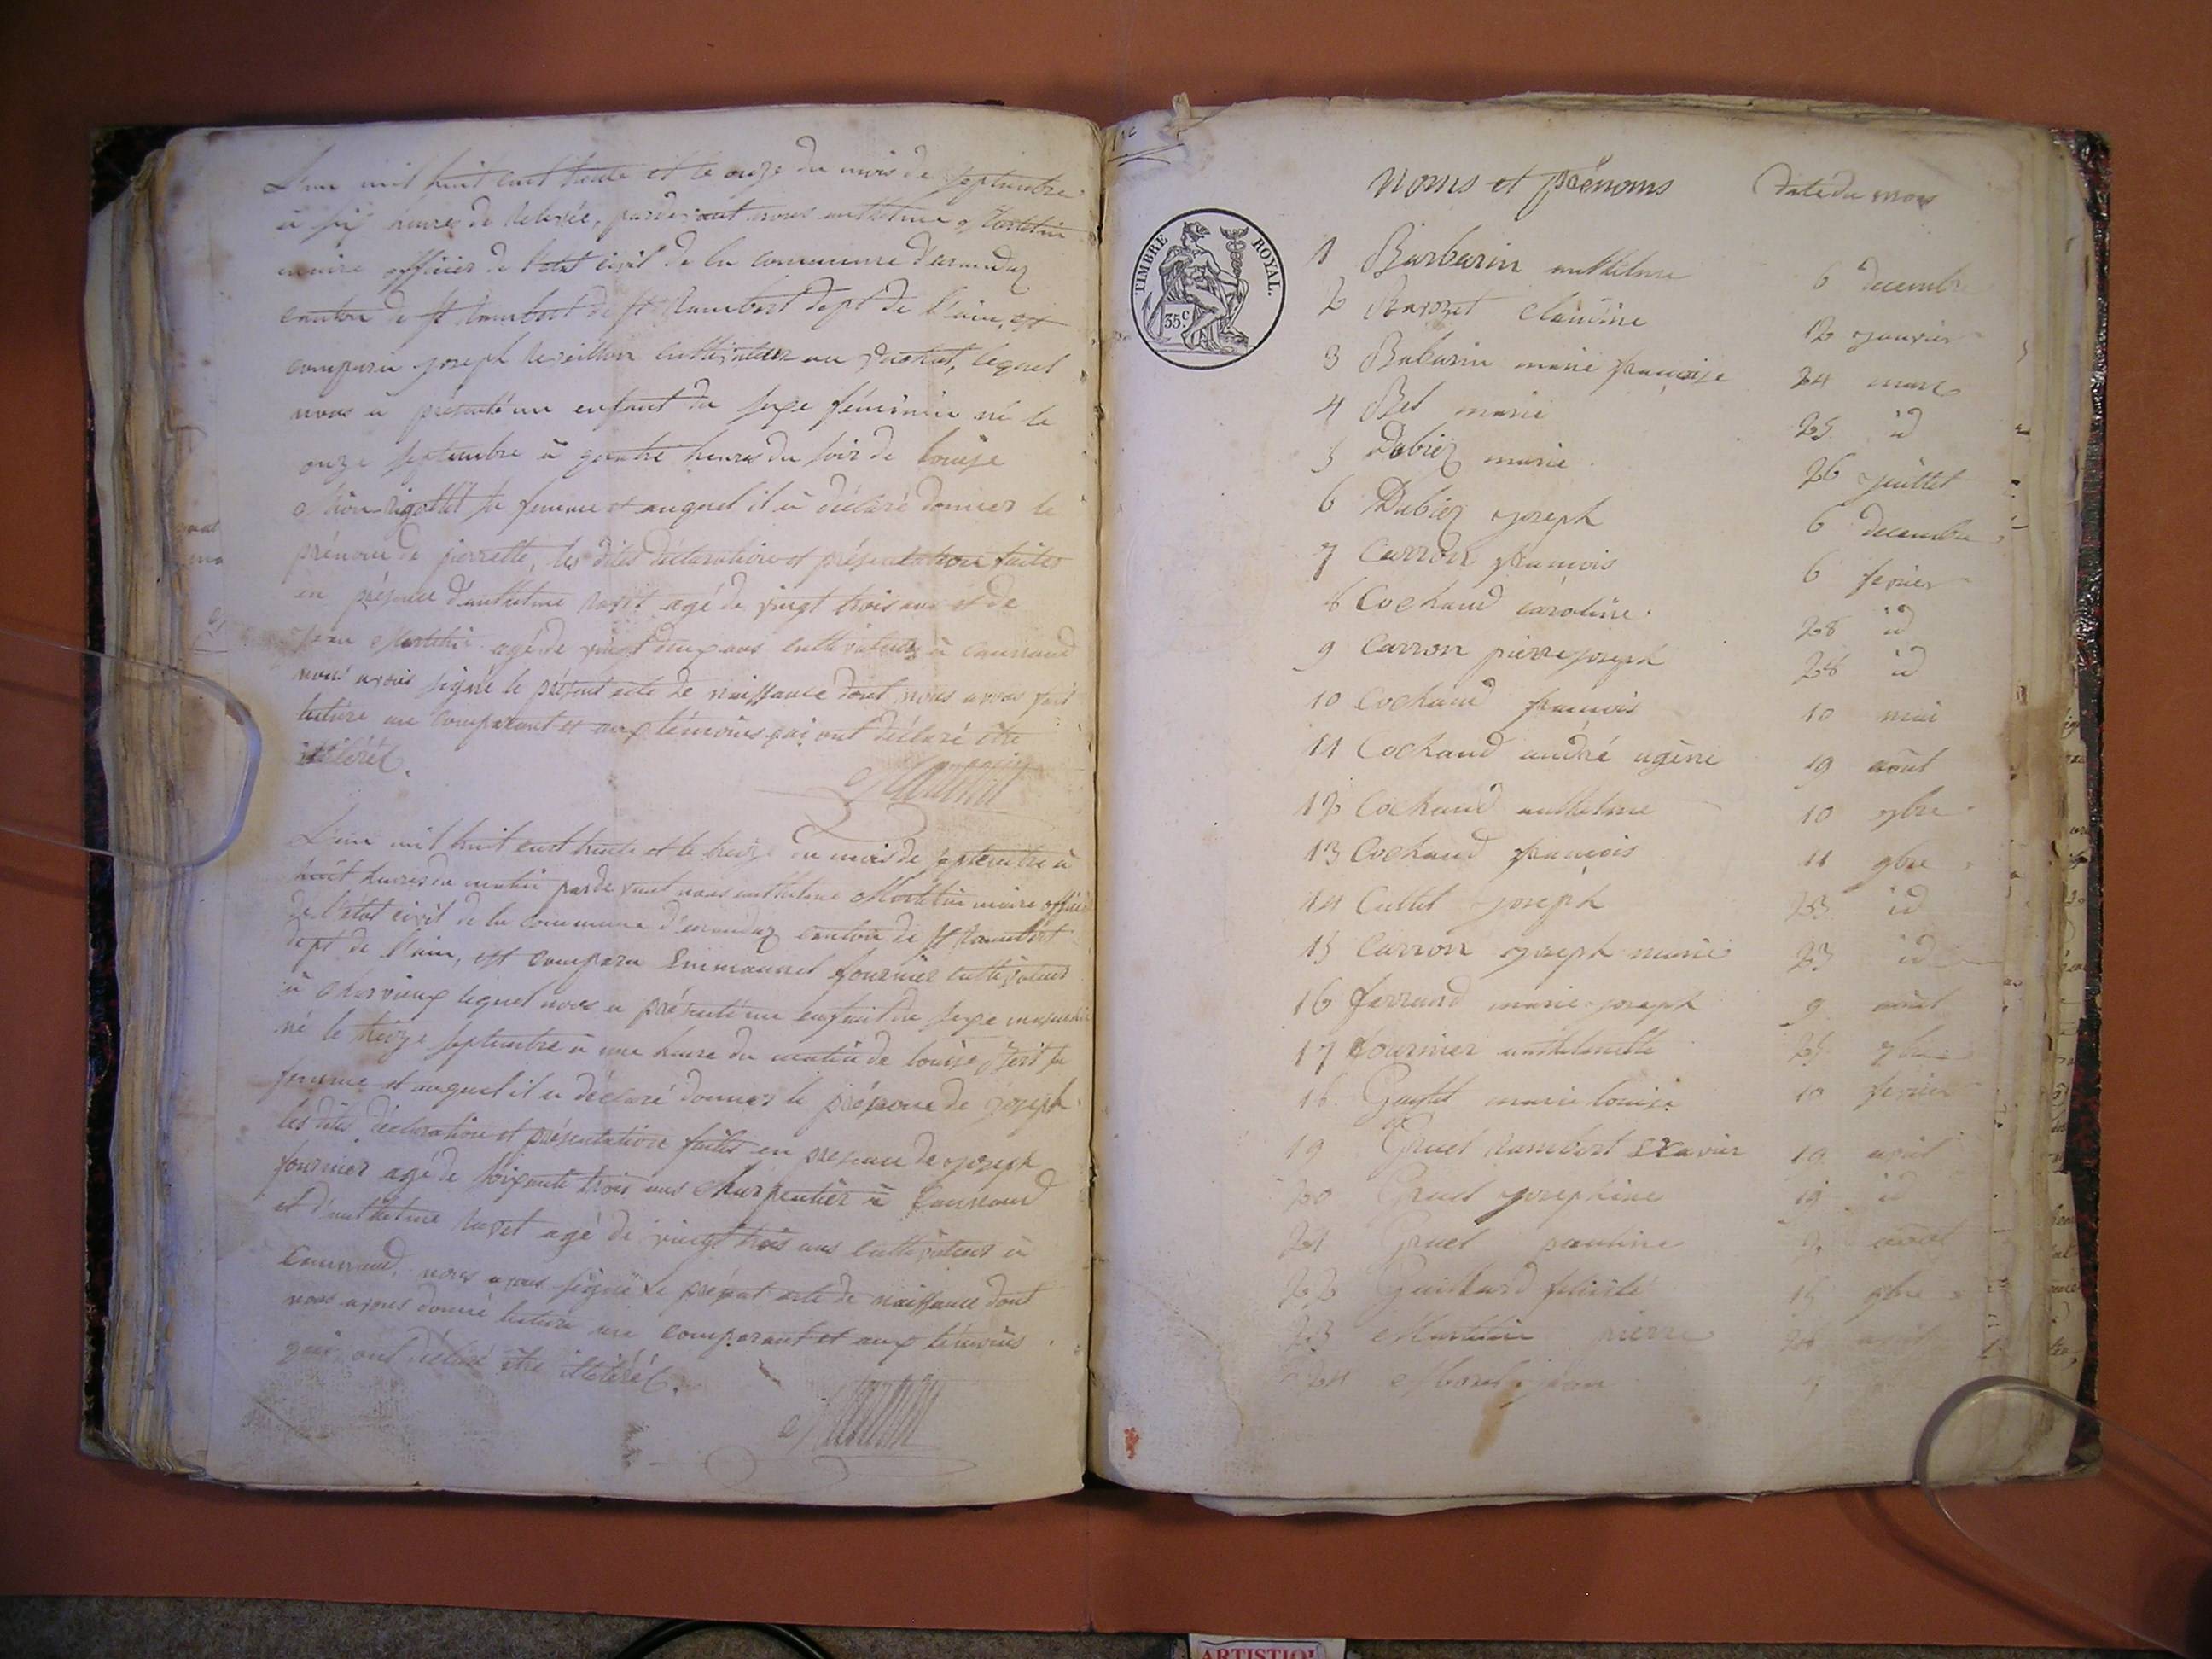 L'an mil huit cent trente et le onze du mois de septembre
à six heures de relevée, pardevant nous anthelme Martelin
maire officier de l'etat civil de la commune d'arandaz
canton de st rambert de st Rambert dept de l'ain, est
comparu joseph cultivateur au lequel
nous a présenté un enfant du sexe féminin né le
onze septembre à quatre heures du soir de louise
sa femme et auquel il a déclaré donner le
prénom de pierrette, les dites déclaration et présentation faites
en présence d'anthelme ravet agé de vingt trois ans et de
jean Martelin agé de vingt deux ans cultivateurs à
nous avons signé le présent acte de naissance dont nous avons fait
lecture au comparant et aux témoins qui ont déclaré être
illétéré.
Martelin
L'an mil huit cent trente et le treize du mois de septembre à
huit heures du matin pardevant nous anthelme Martelin maire officier
de l'etat civil de la commune d'arandaz canton de st rambert
dept de l'ain, est comparu Emmanuel fournier cultivateur
à lequel nous a présenté un enfant du sexe masculin
né le treize septembre à une heure du matin de louise sa
femme et auquel il a déclaré donner le prénom de joseph
les dites déclaration et présentation faites en presence de joseph
fournier agé de soixante trois ans charpentier à
et d'anthelme ravet agé de vingt trois ans cultivateur à
nous avons signé le présent acte de naissance dont
nous avons donné lecture au comparant et aux témoins
qui ont déclaré être illétéré.
Martelin
noms et prénoms Date du mois
TIMBRE ROYAL.
35c
1 Barbarin anthelme 6 decembre
2 Claudine 12 janvier
3 Babarin marie françoise 24 mars
4 Bel marie 25 id
5 Dubiez marie 26 juillet
6 Dubiez joseph 6 decembre
7 Carron francois 6 fevrier
8 Cochaud caroline 28 id
9 Carron pierre joseph 28 id
10 Cochaud francois 10 mai
11 Cochaud andré ugène 19 août
12 Cochaud anthelme 10
13 Cochaud francois 11 9bre
14 Cullet joseph 23 id
15 Carron joseph marie 23 id
16 ferrand marie joseph 9
17 fournier anthelmette 25
18 marie louise 10 fevrier
19 Gruel rambert Exavier 19 avril
20 Gruel josephine 19 id
21 Gruel pauline
22 félicité 15 9bre
23 Martelin pierre
24 jean
ARTISTIQ